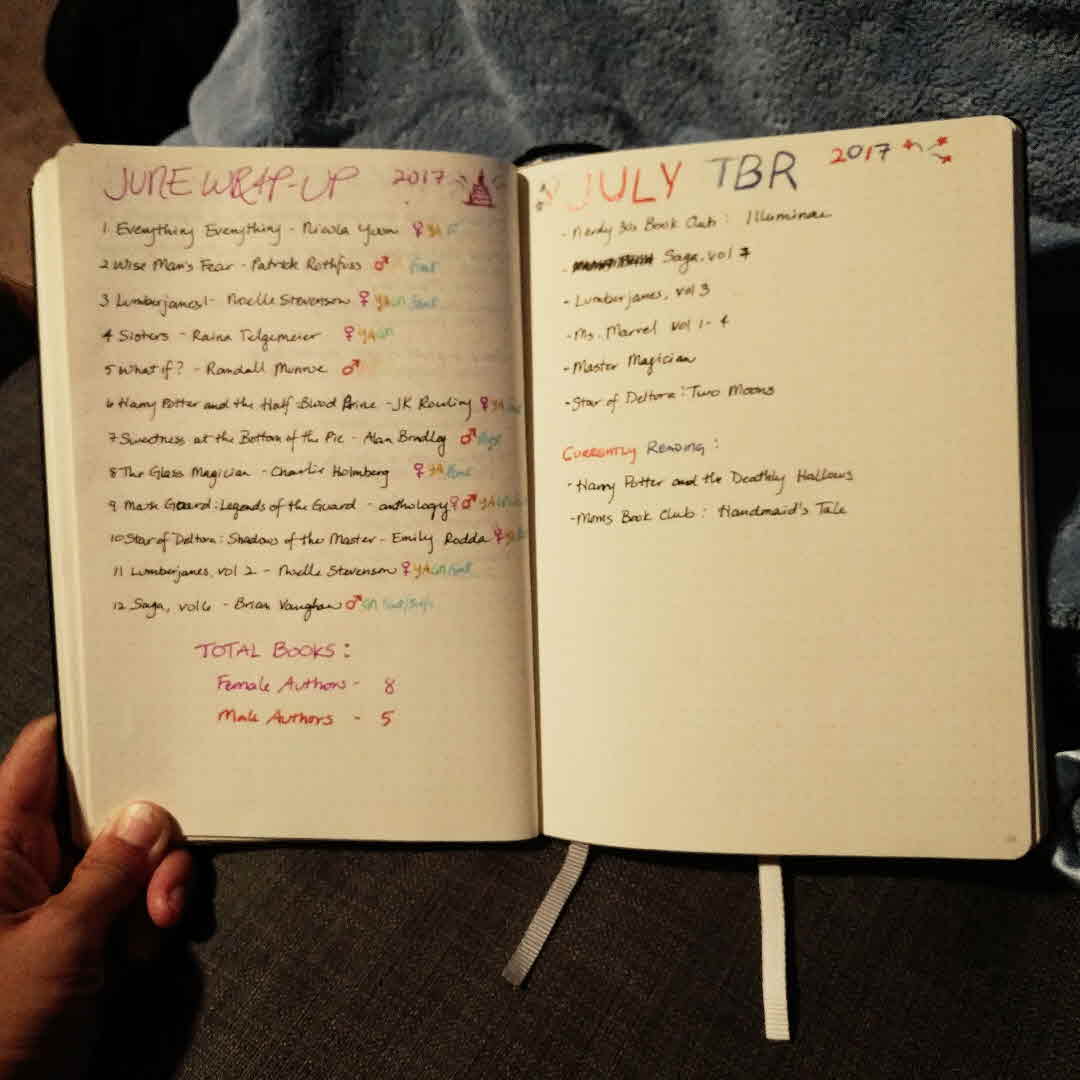 JUNE WRAP-UP 2017
1 Everything Everything - Nicola Yoon ♀ YA
2 Wise Man's Fear - Patrick Rothfuss ♂ Fant
3 Lumberjanes 1 - Noelle Stevenson ♀ YA GN Fant
4 Sisters - Raina Telgemeier ♀ YA GN
5 What if? - Randall Munroe ♂
6 Harry Potter and the Half-Blood Prince - JK Rowling ♀ YA
7 Sweetness at the Bottom of the Pie - Alan Bradley ♂
8 The Glass Magician - Charlie Holmberg ♀ YA Fant
9 Mouse Guard: Legends of the Guard - anthology ♀♂ YA GN
10 Star of Deltora: Shadows of the Master - Emily Rodda ♀ YA
11 Lumberjanes, vol 2 - Noelle Stevenson ♀ YA GN Fant
12 Saga, vol 6 - Brian Vaughan ♂ GN Fant/Scifi
TOTAL BOOKS:
Female Authors - 8
Male Authors - 5
JULY TBR 2017
- Nerdy 30s Book Club: Illuminae
- Saga, vol 7
- Lumberjanes, vol 3
- Ms. Marvel vol 1-4
- Master Magician
- Star of Deltora: Two Moons
CURRENTLY READING:
- Harry Potter and the Deathly Hallows
- Moms Book Club: Handmaid's Tale